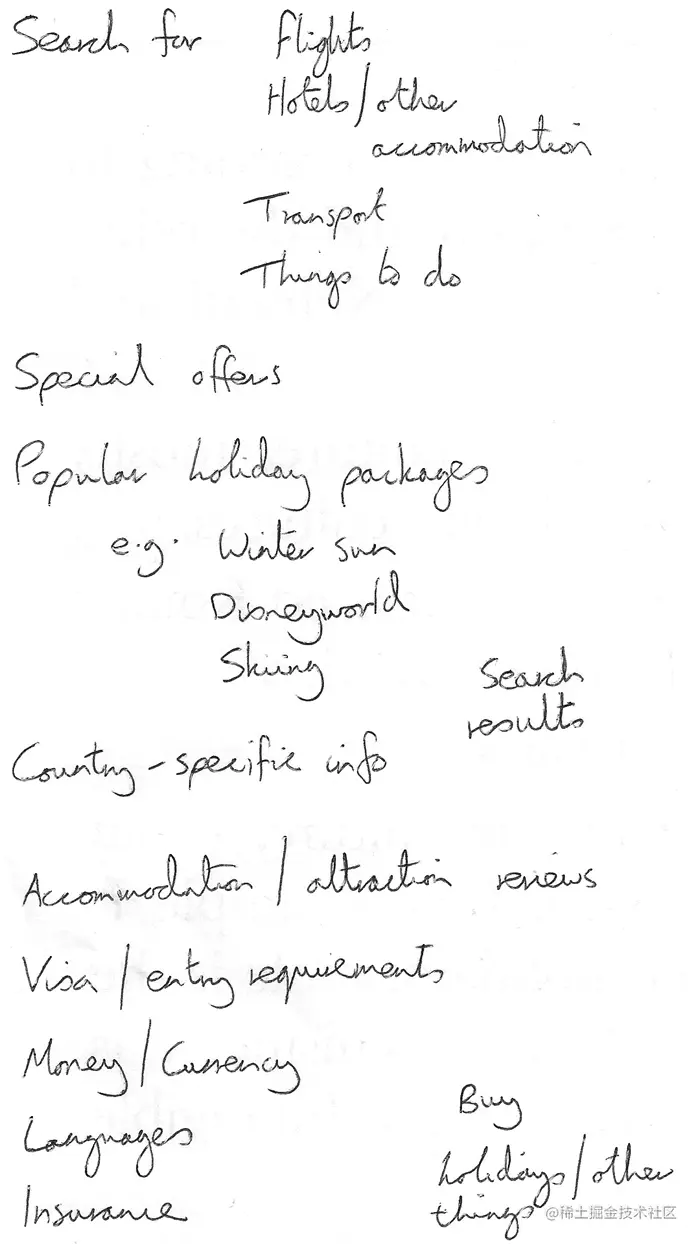 Search for Flights
Hotels/other
accommodation
Transport
Things to do
Special offers
Popular holiday packages
e.g. Winter sun
Disneyworld
Skiing
Search
results
Country-specific info
Accommodation/attraction reviews
Visa/entry requirements
Money/Currency
Buy
Languages
holidays/other
Insurance
things
@稀土掘金技术社区